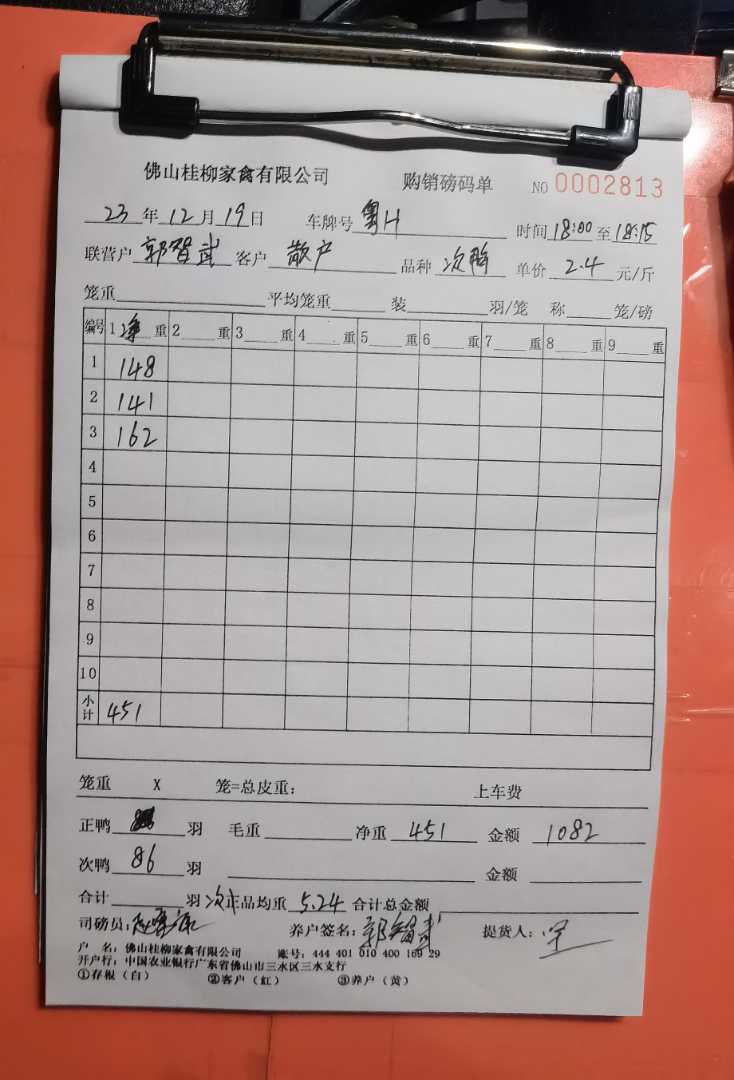 佛山桂柳家禽有限公司 购销磅码单 NO 0002813
23 年 12 月 19 日 车牌号 粤H 时间 18:00 至 18:15
联营户 郭智武 客户 散户 品种 次鸭 单价 2.4 元/斤
笼重 平均笼重 装 羽/笼 称 笼/磅
编号 1 净 重 2 重 3 重 4 重 5 重 6 重 7 重 8 重 9 重
1 148
2 141
3 162
4
5
6
7
8
9
10
小计 451
笼重 X 笼=总皮重: 上车费
正鸭 羽 毛重 净重 451 金额 1082
次鸭 86 羽 金额
合计 羽 次 品均重 5.24 合计总金额
司磅员: 养户签名: 郭智武 提货人:
户 名: 佛山桂柳家禽有限公司 账号: 444 401 010 400 169 29
开户行: 中国农业银行广东省佛山市三水区三水支行
①存根(白) ②客户(红) ③养户(黄)